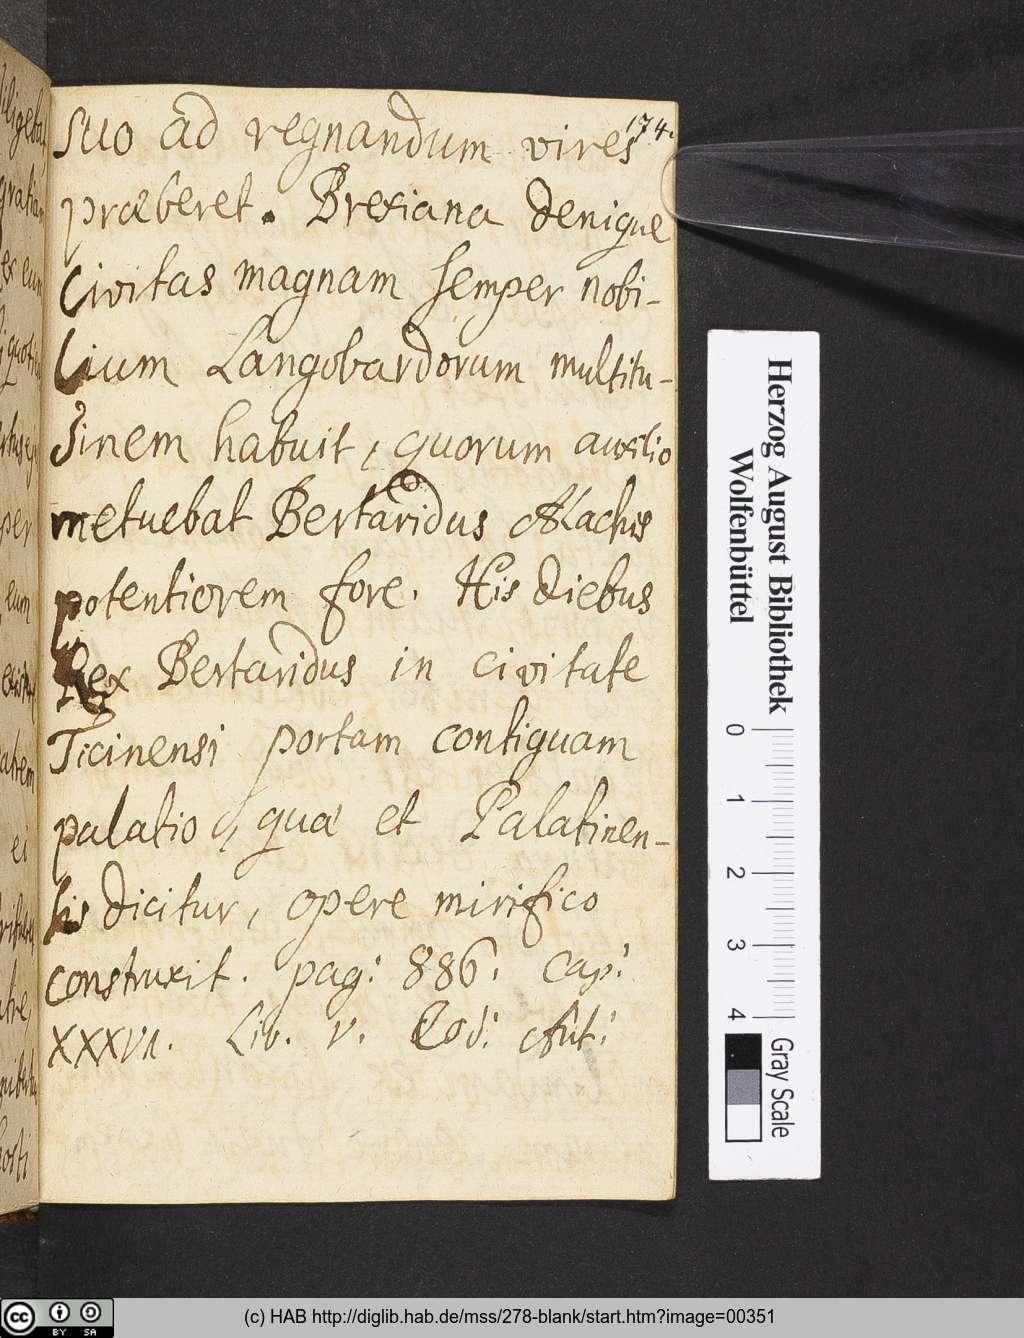 174.
suo ad regnandum vires
præberet. Brexiana denique
Civitas magnam semper nobi-
lium Langobardorum multitu-
dinem habuit, quorum auxilio
metuebat Bertaridus Alachis
potentiorem fore. His diebus
Rex Bertaridus in civitate
Ticinensi portam contiguam
palatio, quæ et Palatinen-
sis dicitur, opere mirifico
construxit. pag: 886. Cap:
XXXVI. Liv. V. Cod: Aut:
Herzog August Bibliothek
Wolfenbüttel
0 1 2 3 4
Gray Scale
cc BY SA
(c) HAB http://diglib.hab.de/mss/278-blank/start.htm?image=00351